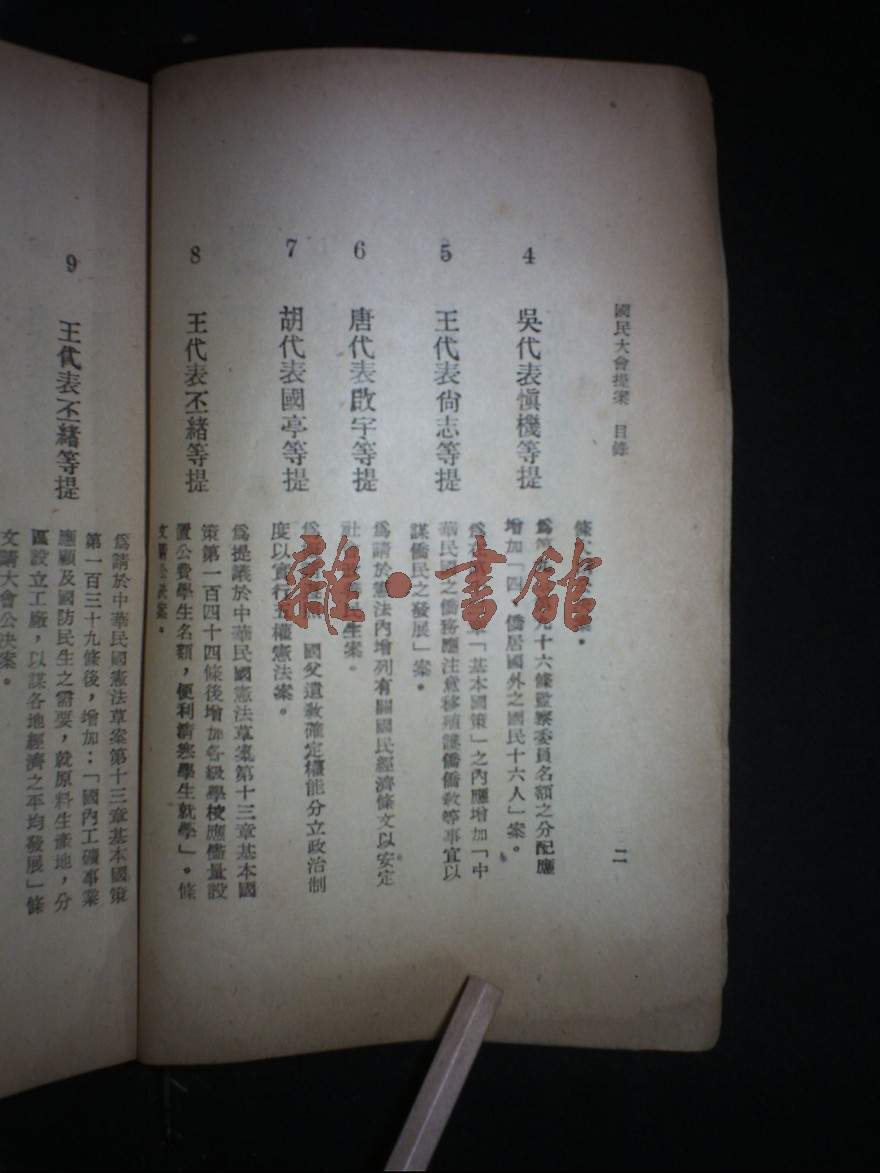 國民大會提案 目錄
二
案。
4 吳代表慎機等提
十六條監察委員名額之分配應
增加「四、僑居國外之國民十六人」案。
5 王代表尙志等提
「基本國策」之內應增加「中
華民國之僑務應注意移殖護僑僑敎等事宜以
謀僑民之發展」案。
6 唐代表啟宇等提
爲請於憲法內增列有關國民經濟條文以安定
社會 民生案。
7 胡代表國亭等提
國父遺敎確定權能分立政治制
度以實行五權憲法案。
8 王代表丕緒等提
爲提議於中華民國憲法草案第十三章基本國
策第一百四十四條後增加各級學校應儘量設
置公費學生名額，便利清寒學生就學」。條
文請公決案。
9 王代表丕緒等提
爲請於中華民國憲法草案第十三章基本國策
第一百三十九條後，增加：「國內工礦事業
應顧及國防民生之需要，就原料生產地，分
區設立工廠，以謀各地經濟之平均發展」條
文請大會公決案。
雜·書館